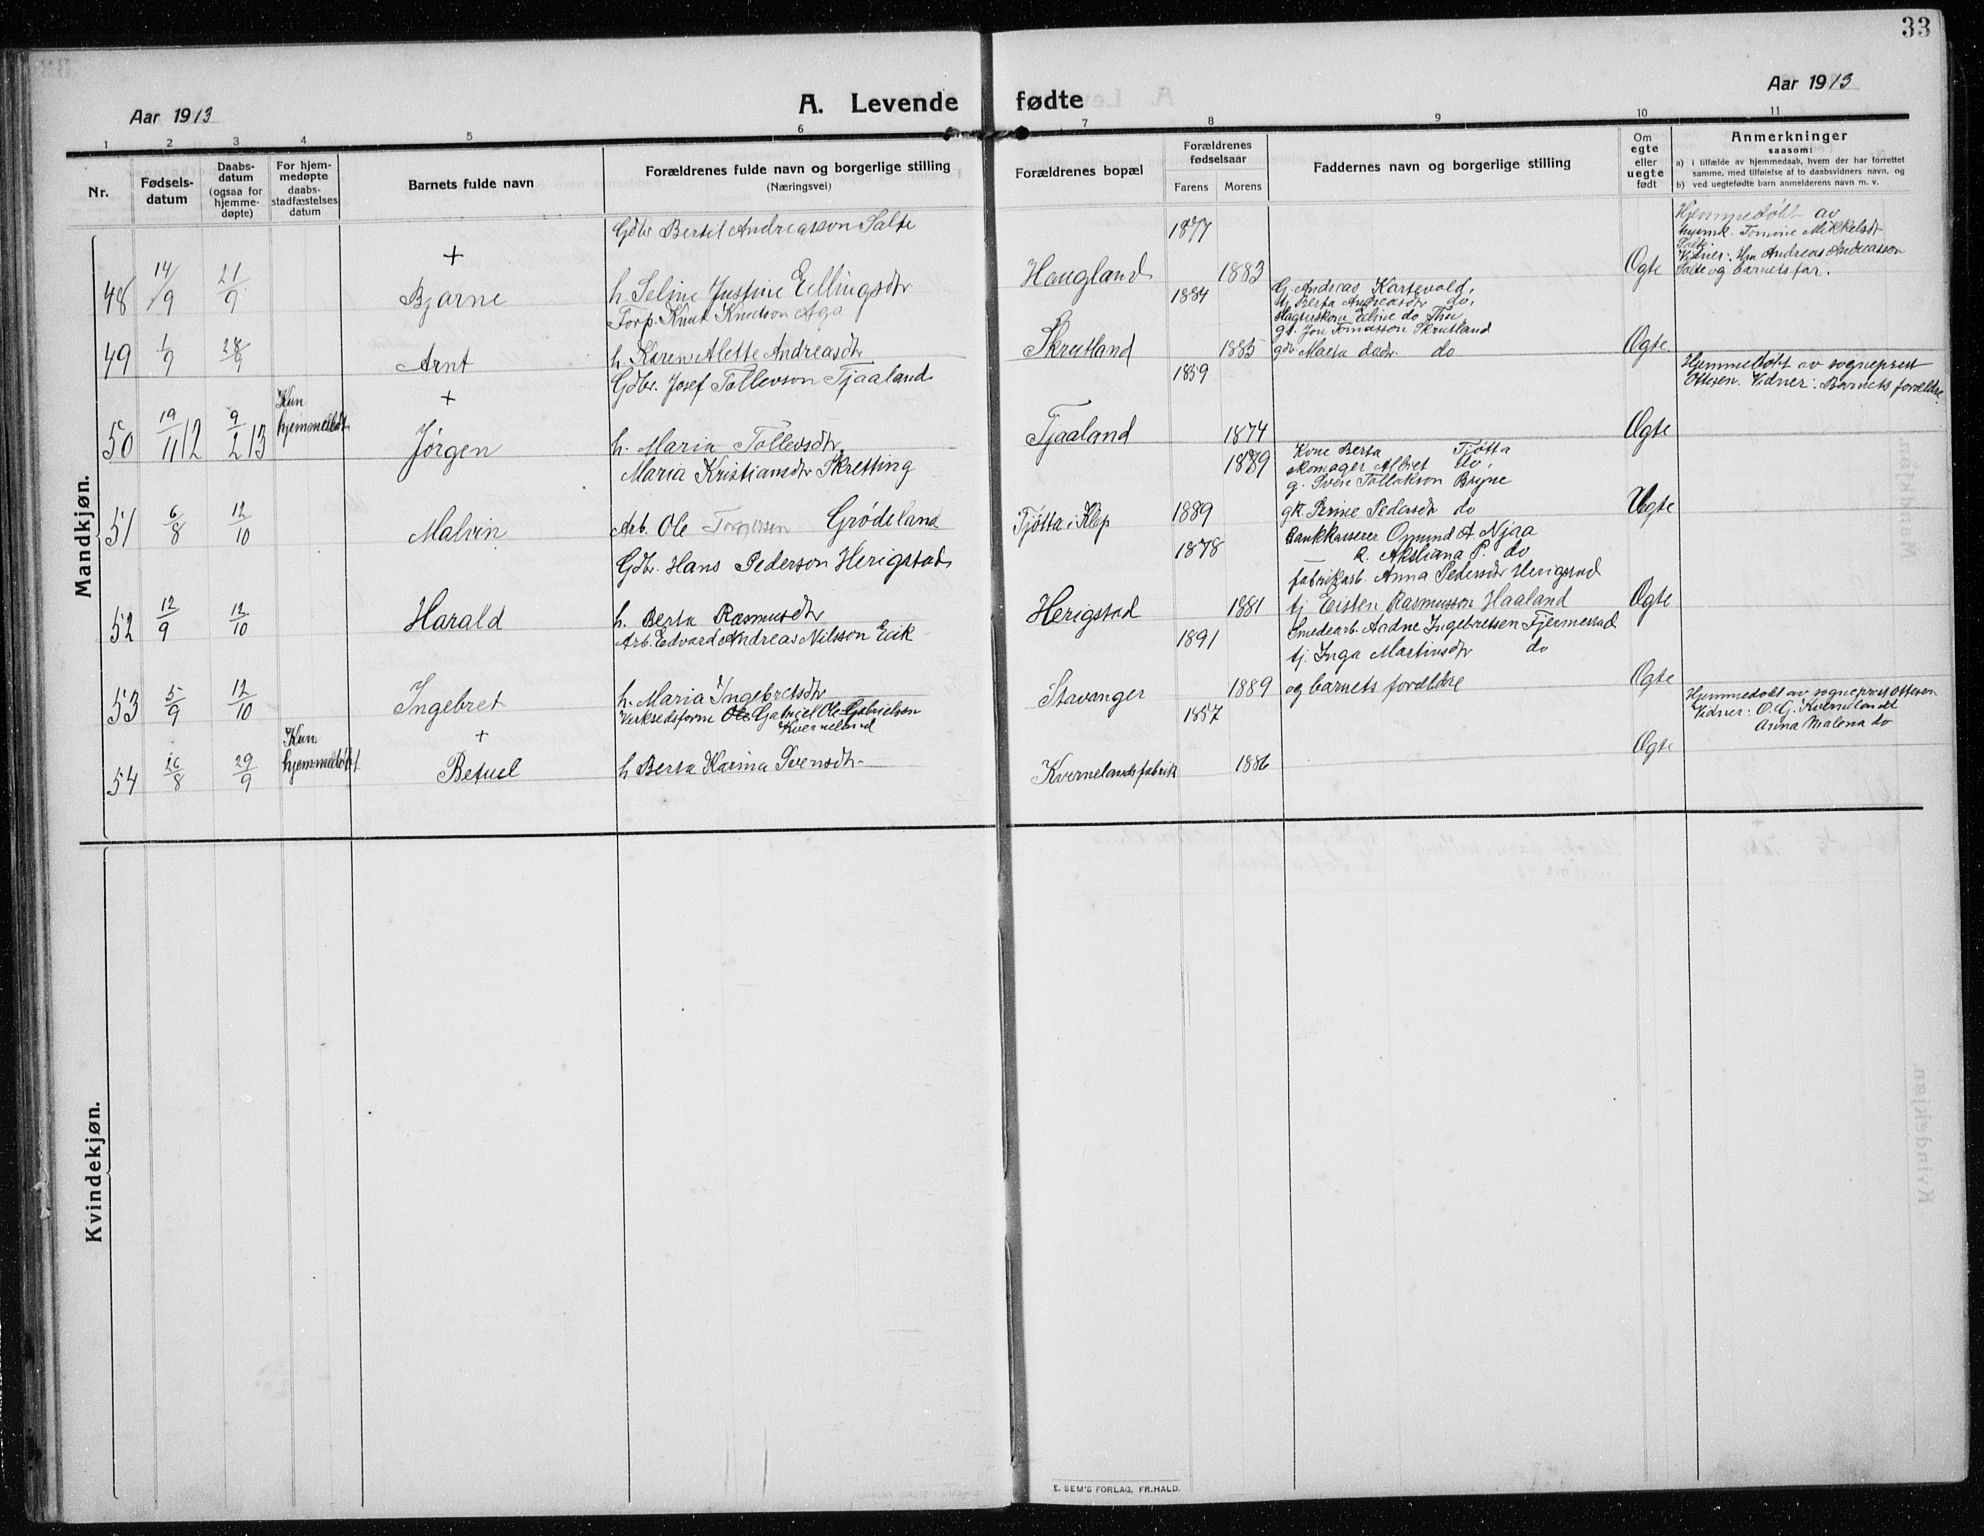 33
Aar 1913
A. Levende fødte
Aar 1913
1 2 3 4 5 6 7 8 9 10 11
Nr.
Fødsels-
datum
Daabs-
datum
(ogsaa for
hjemme-
døpte)
For hjem-
medøpte
daabs-
stadfæstelses
datum
Barnets fulde navn
Forældrenes fulde navn og borgerlige stilling
(Næringsvei)
Forældrenes bopæl
Forældrenes
fødselsaar
Farens Morens
Faddernes navn og borgerlige stilling
Om
egte
eller
uegte
født
Anmerkninger
saasom:
a) i tilfælde av hjemmedaab, hvem der har forrettet
samme, med tilføielse af to daabsvidners navn, og
b) ved uegtefødte barn anmelderens navn m. v.
Mandkjøn.
48 14/9 21/9
+
Bjarne
Gdbr Bertel Andreasson Salte
h. Seline Justine Ellingsdtr
Haugland
1877
1883
Ægte
Hjemmedøbt av
Tomine Mikkelsdr
Salte.
Vidner: Andreas Andreasson
Salte og barnets far.
49 1/9 28/9
Arnt
Forp. Knut Knutson Aga
h. Karen Alette Andreasdtr
Skrutland
1884
1885
G. Andreas Kartevold,
Berta Andreasdtr do,
Eline do Thu
g. Jon Tomasson Skrutland
Maria do
Ægte
50 19/11 12 9/2 13
Kun
hjemmedøbt
+
Jørgen
Gdbr. Josef Tollevson Tjaaland
h. Maria Tollevsdtr
Tjaaland
1859
1874
Ægte
Hjemmedøbt av sogneprest
Ottesen. Vidner: Barnets forældre.
51 6/8 12/10
Malvin
Maria Kristiansdtr Skretting
Arb. Ole Torgersen Grødeland
Tjøtta i Klep
1889
1889
Kone Berta Tjøtta
skomager Albret do,
g. Sven Tollakson Bryne
gk Perine Pedersdt do
Uegte
52 12/9 12/10
Harald
Gdbr. Hans Pederson Herigstad
h. Berta Rasmusdtr
Herigstad
1878
1881
Bankkasserer Omund A Njaa
k. Aksliana P. do
fabrikarb. Anna Pedersdtr Herigstad
tj Eisten Rasmusson Haaland
Ægte
53 5/9 12/10
Ingebret
Arb. Edvard Andreas Nilsson Eik
h. Maria Ingebretsdtr
Stavanger
1891
1889
Smedearb. Adne Ingebretsen Fjermestad
tj. Inga Martinsdtr do
og barnets forældre
Ægte
54 26/8 29/9
Kun
hjemmedøbt
+
Betuel
Verksedsform Ole Gabriel Ole Gabrielsen
Kverneland
h Berta Karina Svensdtr
Kvernelandsfabrik
1857
1886
Ægte
Hjemmedøbt av sogneprest Ottesen
Vidner: O. G. Kvernelandt
Anna Malena do
Kvindekjøn.
E. SEM'S FORLAG, FR.HALD.